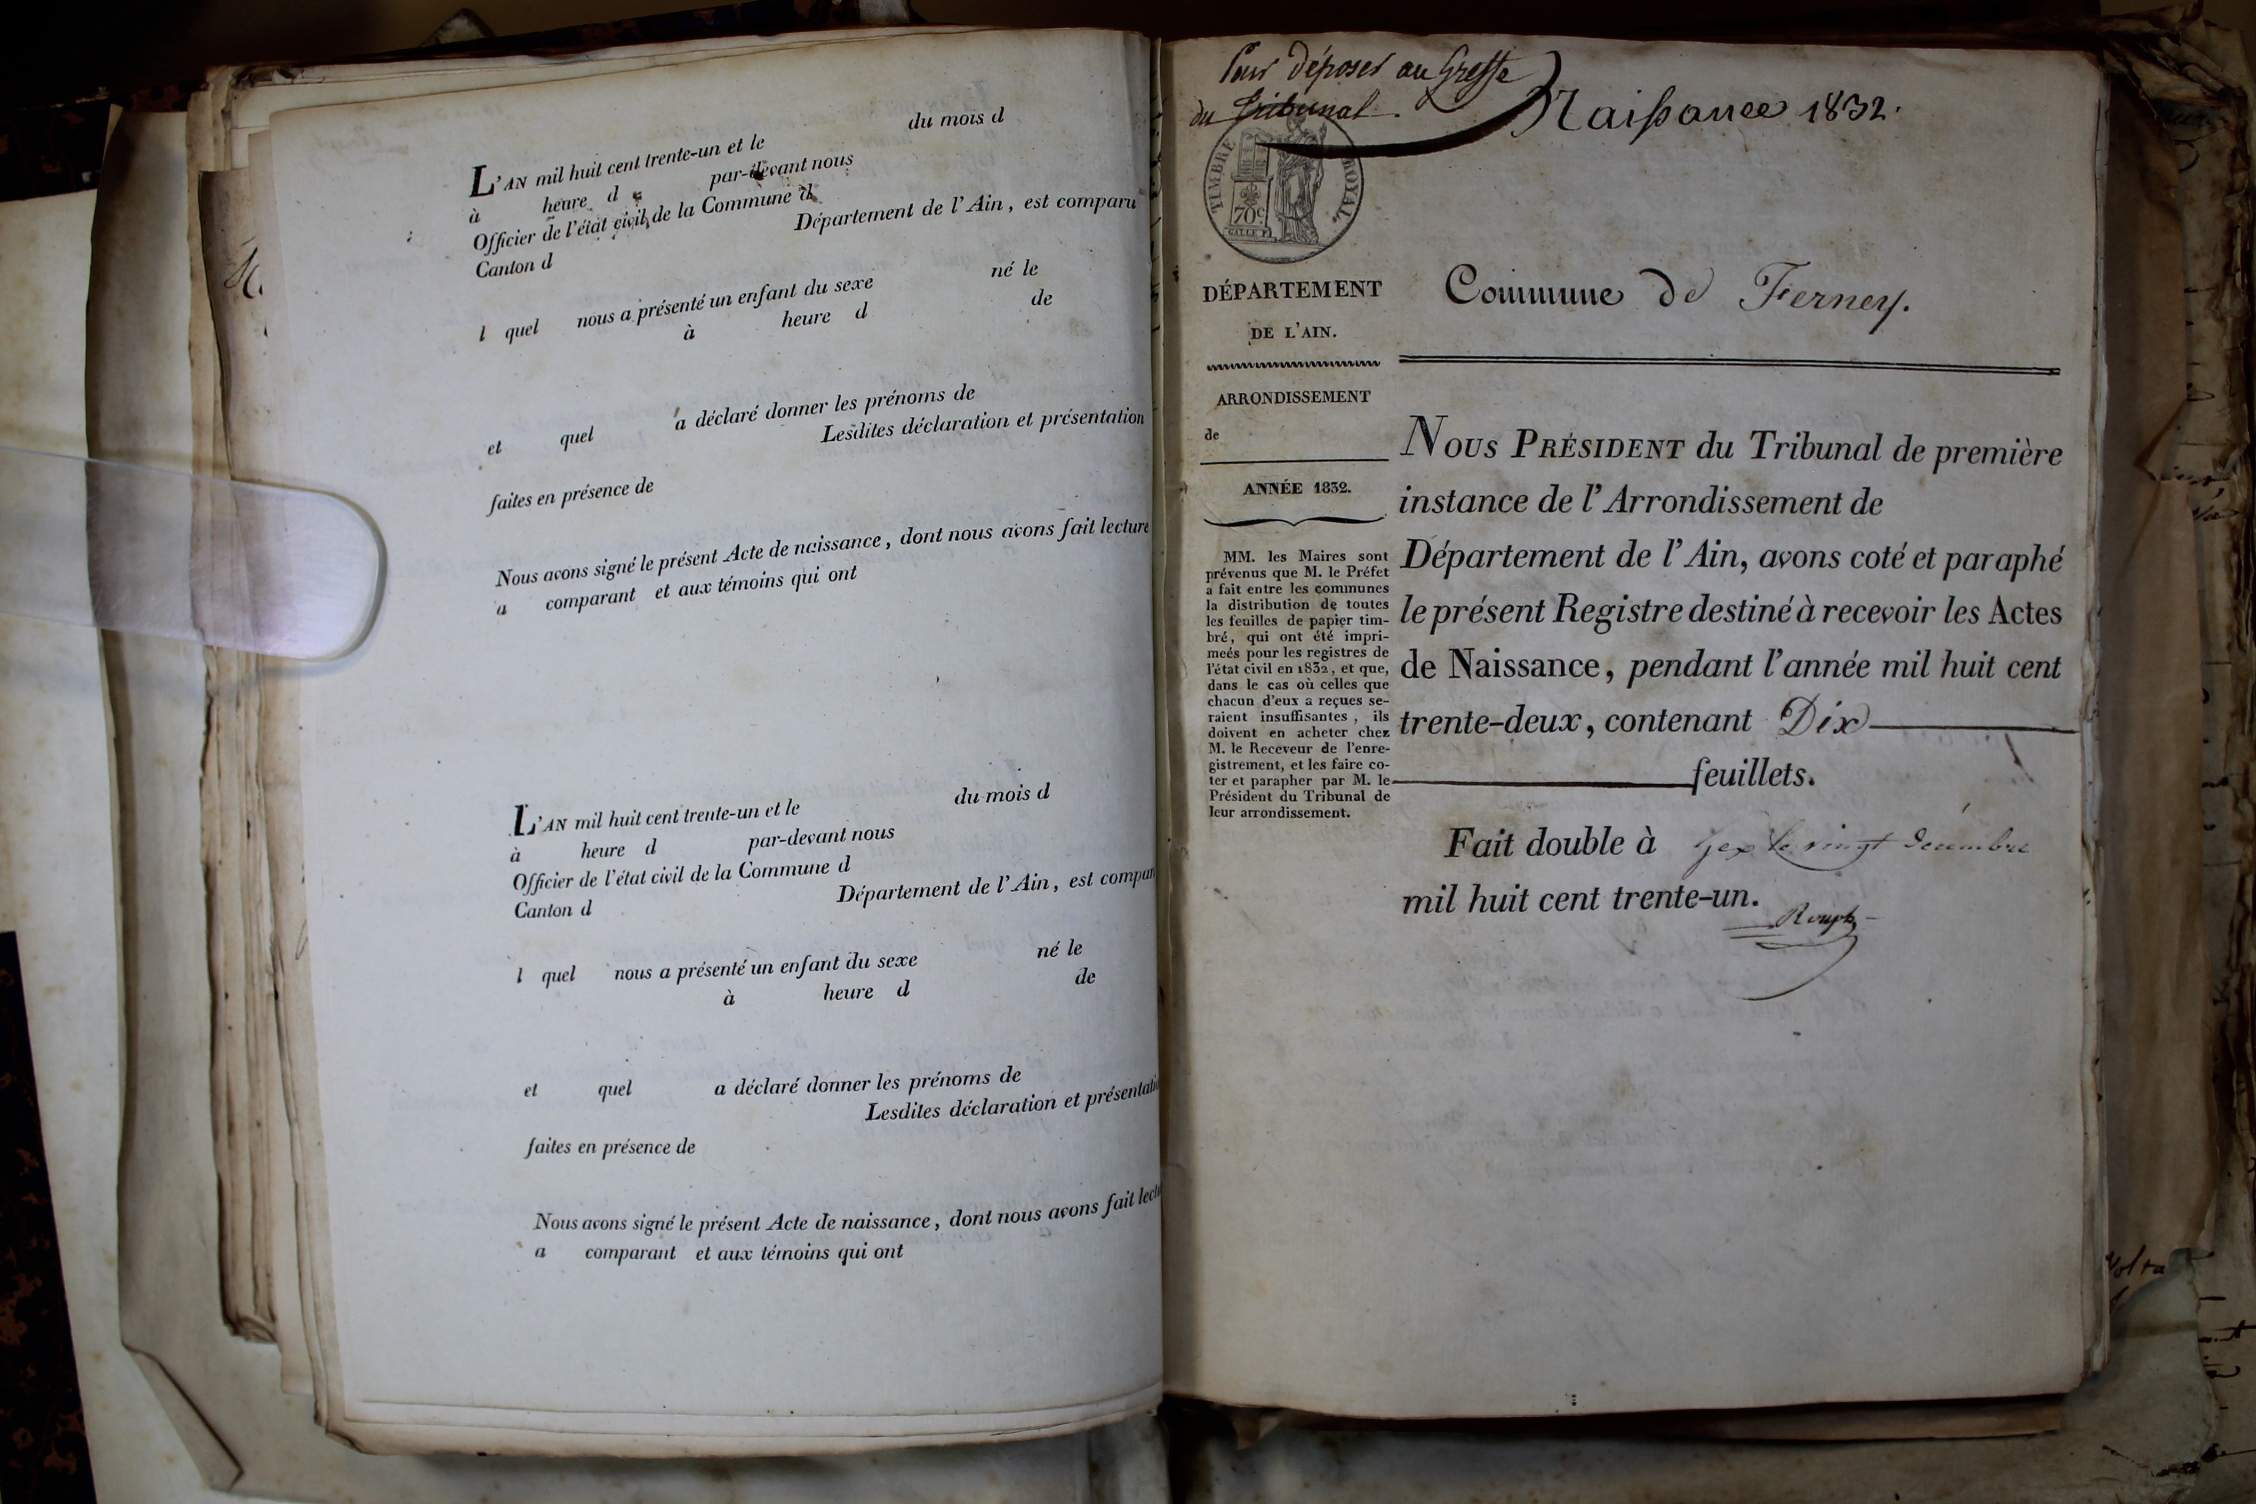 L'AN mil huit cent trente-un et le du mois d
à heure d par-devant nous
Officier de l'état civil de la Commune d
Canton d Département de l'Ain, est comparu
l quel nous a présenté un enfant du sexe né le
à heure d de
et quel a déclaré donner les prénoms de
Lesdites déclaration et présentation
faites en présence de
Nous avons signé le présent Acte de naissance, dont nous avons fait lecture
a comparant et aux témoins qui ont
L'AN mil huit cent trente-un et le du mois d
à heure d par-devant nous
Officier de l'état civil de la Commune d
Canton d Département de l'Ain, est compar
l quel nous a présenté un enfant du sexe né le
à heure d de
et quel a déclaré donner les prénoms de
Lesdites déclaration et présentati
faites en présence de
Nous avons signé le présent Acte de naissance, dont nous avons fait lect
a comparant et aux témoins qui ont
Pour déposer au Greffe
du Tribunal.
Naissance 1832.
TIMBRE ROYAL.
70c
GALLE F.
DÉPARTEMENT
DE L'AIN.
ARRONDISSEMENT
de
ANNÉE 1832.
MM. les Maires sont
prévenus que M. le Préfet
a fait entre les communes
la distribution de toutes
les feuilles de papier tim-
bré, qui ont été impri-
meés pour les registres de
l'état civil en 1832, et que,
dans le cas où celles que
chacun d'eux a reçues se-
raient insuffisantes, ils
doivent en acheter chez
M. le Receveur de l'enre-
gistrement, et les faire co-
ter et parapher par M. le
Président du Tribunal de
leur arrondissement.
Commune de Ferney.
NOUS PRÉSIDENT du Tribunal de première
instance de l'Arrondissement de
Département de l'Ain, avons coté et paraphé
le présent Registre destiné à recevoir les Actes
de Naissance, pendant l'année mil huit cent
trente-deux, contenant Dix
feuillets.
Fait double à Gex le vingt Décembre
mil huit cent trente-un.